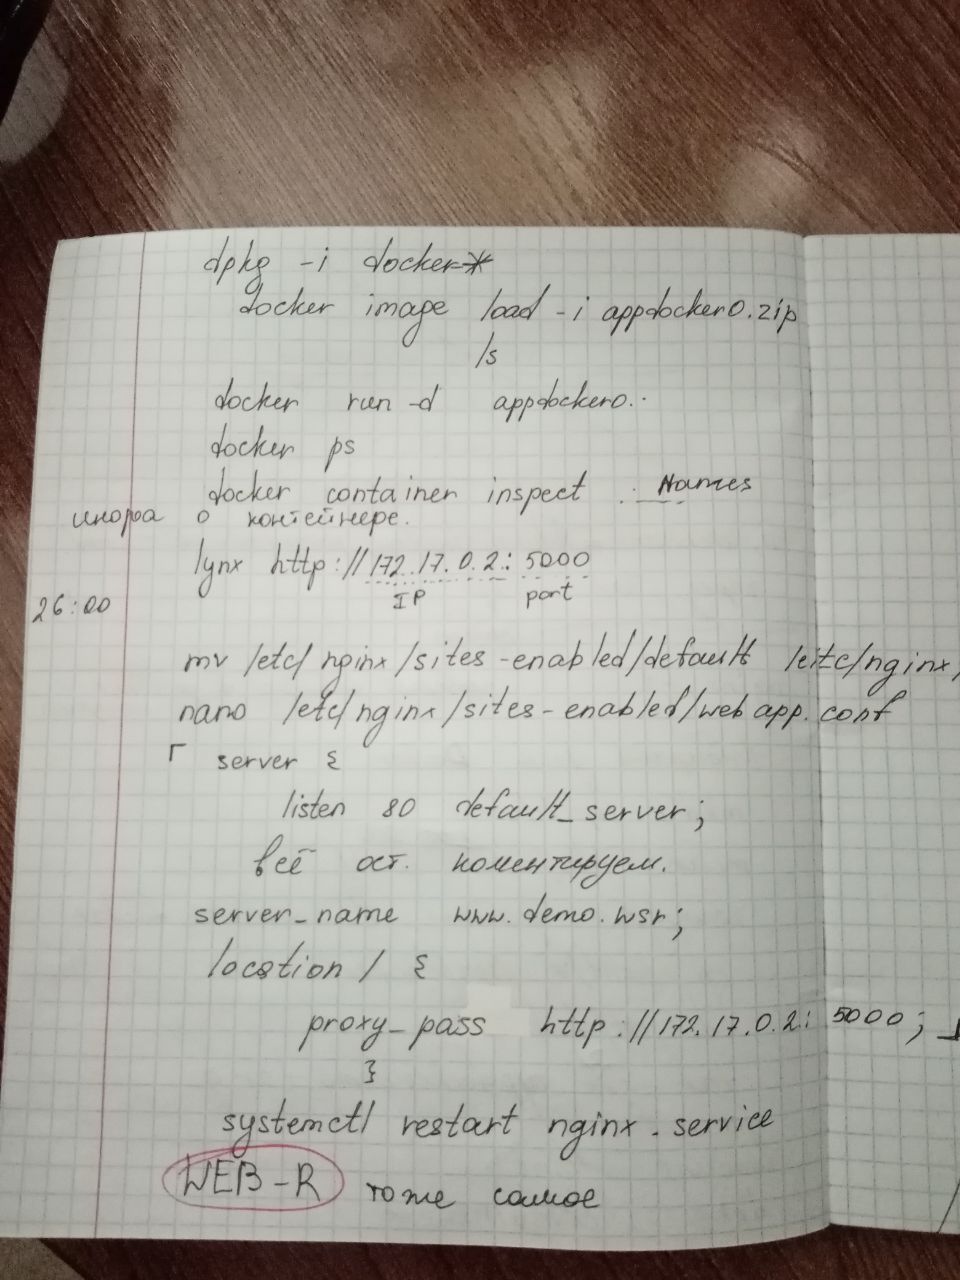 dpkg -i docker*
docker image load -i appdocker0.zip
ls
docker run -d appdocker0..
docker ps
docker container inspect .. Names
инфра о контейнере.
lynx http://172.17.0.2:5000
IP port
26:00
mv /etc/nginx/sites-enabled/default /eitc/nginx/
nano /etc/nginx/sites-enabled/webapp.conf
server {
listen 80 default_server;
всё ост. коментируем.
server_name www.demo.wsr;
location / {
proxy_pass http://172.17.0.2:5000;
}
systemctl restart nginx.service
WEB-R тоже самое